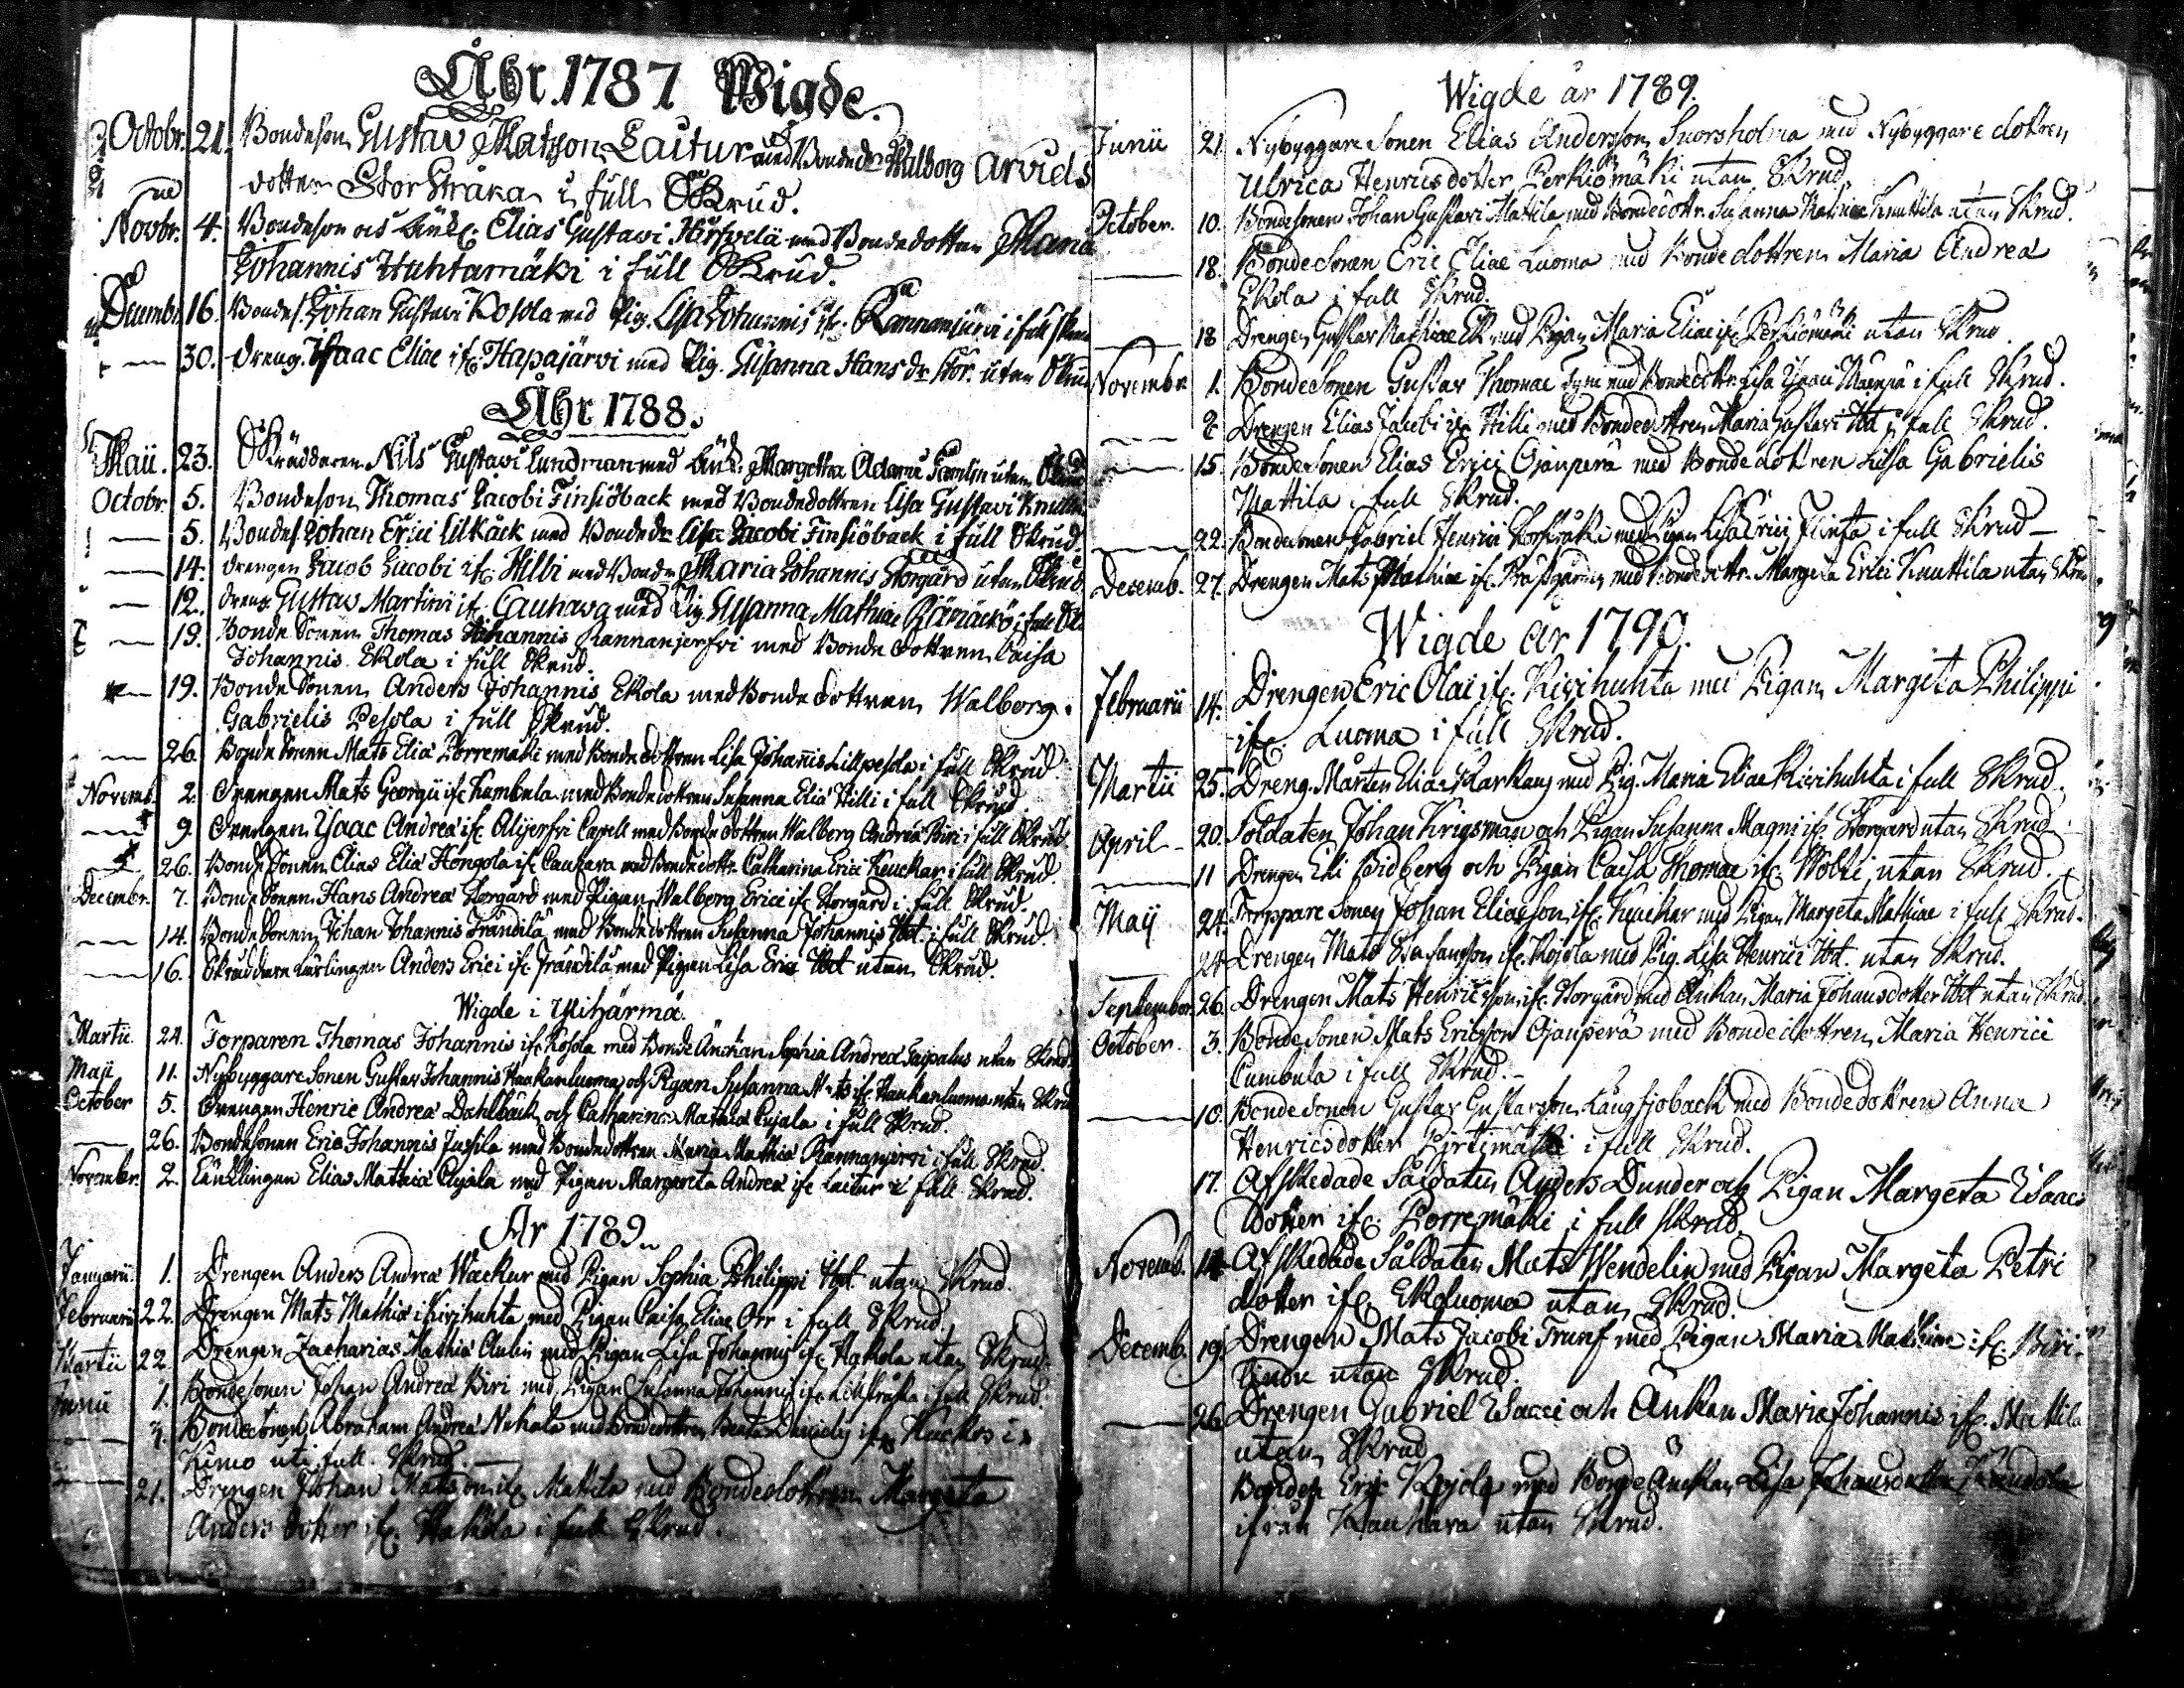 Åhr 1787 Wigde.
Octobr. 21. Bondeson Gustav Matsson Lautur med Bondedr Walborg Arvids
dotter Storstråka i full Skrud.
Novbr. 4. Bondeson och Änkl. Elias Gustavi Hirfvelä med Bondedotter Maria
Johannis Huhtamäki i full Skrud.
Decembr. 16. Bondes. Johan Gustavi Kosola med Pig. Lisa Johannis ifr. Rannanjärvi i full skrud
30. Dreng. Isaac Eliae ifr. Hapajärvi med Pig. Susanna Hans dr Stor. utan Skrud
Åhr 1788.
Maii. 23. Skräddaren Nils Gustavi Lundman med Änk. Margetha Adami utan Skrud
Octobr. 5. Bondeson Thomas Jacobi Finsiöback med Bondedottren Lisa Gustavi Knuttila
5. Bondes Johan Erici Lilkåck med Bondedr Lisa Jacobi Finsiöback i full Skrud.
14. Drengen Jacob Jacobi ifr. Hilbi med Bondr Maria Johannis Storgård utan Skrud.
12. Dreng Gustav Martini ifr. Cauhava med Pig. Susanna Mathiae i full
19. Bonde Sonen Thomas Johannis Rannanjerfvi med Bonde dottren Caisa
Johannis Ekola i full Skrud.
19. Bonde Sonen Anders Johannis Ekola med Bonde dottren Walborg
Gabrielis Pesola i full Skrud.
26. Bonde Sonen Mats Elia Porremäki med Bonde dottren Lisa Johannis Lillpesola i full Skrud
Novemb. 2. Drengen Mats Georgii ifr Kambala med Bondedottren Susanna Elia Hilli i full Skrud.
9. Drengen Isaac Andreæ ifr Alijerfvi Capell med Bonde dottren Walborg Andreæ Biri i full Skrud.
26. Bonde Sonen Elias Elia Hongola ifr Cauhava med Bondedottr Catharina Erici Keuckar i full Skrud.
Decembr. 7. Bonde Sonen Hans Andreæ Storgård med Pigan Walborg Erici ifr Storgård i full Skrud.
14. Bonde Sonen Johan Johannis Frändilä med Bonde dottren Susanna Johannis Ibd. i full Skrud.
16. Skräddare Lärlingen Anders Erici ifr Frändilä med Pigan Lisa Erici Ibd utan Skrud.
Wigde i Ylihärmä.
Martii. 24. Torparen Thomas Johannis ifr Kosola med Bonde Änckan Sophia Andreæ utan Skrud.
Maji 11. Nybyggare Sonen Gustav Johannis Haakanluoma och Pigan Susanna Mats ifr Haakanluoma utan Skrud
October 5. Drengen Henric Andreæ Dahlbäck och Catharina Mathiæ Cujala i full Skrud.
26. Bondesonen Eric Johannis Jussila med Bondedottren Maria Mathiæ Rannanjerfvi i full Skrud.
November. 2. Änklingen Elias Mathiæ Cujala med Pigan Margareta Andreæ ifr Lautur i full Skrud.
År 1789.
Januarii. 1. Drengen Anders Andreæ Wackur med Pigan Sophia Philippi Ibd. utan Skrud.
Februarii 22. Drengen Mats Mathiæ i Kivihuhta med Pigan Caisa Eliae Orr i full Skrud.
Martii 22. Drengen Zacharias Mathiæ Aulin med Pigan Lisa Johannis ifr Hakola utan Skrud.
Junii 1. Bondesonen Johan Andreæ Biri med Pigan Susanna Johannis ifr Lillstråka i full Skrud.
Bondesonen Abraham Andreæ Nahala med Bondedottren Beata Davidis ifr Kuckos i
Kimo uti full Skrud.
21. Drengen Johan Matsson ifr Mattila med Bondedottren Margeta
Anders dotter ifr. Hakola i full Skrud.
Wigde år 1789.
Junii 21. Nybyggare Sonen Elias Andersson Suorsholma med Nybyggare dottren
Ulrica Henricsdotter Perkiömäki utan Skrud.
October. 10. Bondesonen Johan Gustavi Mattila med Bondedottr. Susanna Knuttila utan Skrud.
18. Bonde Sonen Eric Eliae Luoma med Bonde dottren Maria Andreæ
Ekola i full Skrud.
18 Drengen Gustav Mathiae Ek med Pigan Maria Eliae ifr Perkiömäki utan Skrud.
Novembr. 1. Bonde Sonen Gustav Thomae med Bondedottr. Lisa Isaaci i full Skrud.
8 Drengen Elias Jacobi ifr Hilli med Bondedottren Maria Gustavi Ibd i full Skrud.
15. Bonde Sonen Elias Erici Ojanperä med Bondedottren Lisa Gabrielis
Mattila i full Skrud.
22. Bondesonen Gabriel Henrici Storstråka med Pigan Lisa Erici i full Skrud
Decemb. 27. Drengen Mats Mathiae ifr. med Bondedottr. Margeta Erici Knuttila utan Skrud
Wigde år 1790.
Februarii 14. Drengen Eric Olai ifr. Kivihuhta med Pigan Margeta Philippi
ifr. Luoma i full Skrud.
Martii 25. Dreng. Mårten Eliae Karkaus med Pig. Maria Eliae Kivihuhta i full Skrud.
April 20. Soldaten Johan Krigsman och Pigan Susanna Magni ifr Storgård utan Skrud.
11 Drengen Eli Bidberg och Pigan Caisa Thomae ifr. Wolti utan Skrud.
Maij 24. Torppare Sonen Johan Eliaeson ifr. Keuckar med Pigan Margeta Mathiae i full Skrud.
24 Drengen Mats ifr. Kojola med Pig. Lisa Henrici Ibd. utan Skrud.
September. 26. Drengen Mats Henricsson ifr. Storgård med Änkan Maria Johansdotter Ibd utan Skrud
October. 3. Bonde Sonen Mats Ericsson Ojanperä med Bondedottren Maria Henrici
Cumbula i full Skrud.
10. Bonde Sonen Gustav Gustavson Långsjoback med Bondedottren Anna
Henricsdotter Pirtimäki i full Skrud.
17. Afskedade Såldaten Anders Dunder och Pigan Margeta Isaacs
dotter ifr. Porremäki i full skrud.
Novemb. 14. Afskedade Såldaten Mats Wendelin med Pigan Margeta Petri
dotter ifr. Ekoluoma utan Skrud.
Decemb. 19. Drengen Mats Jacobi Trumf med Pigan Maria Mathiae ifr. Biri
utan Skrud.
26. Drengen Gabriel Isaaci och Änkan Maria Johannis ifr. Mattila
utan Skrud
Bonden Eric Kojola med Bonde Änckan Lisa Johansdotter
ifrån Kauhava utan Skrud.